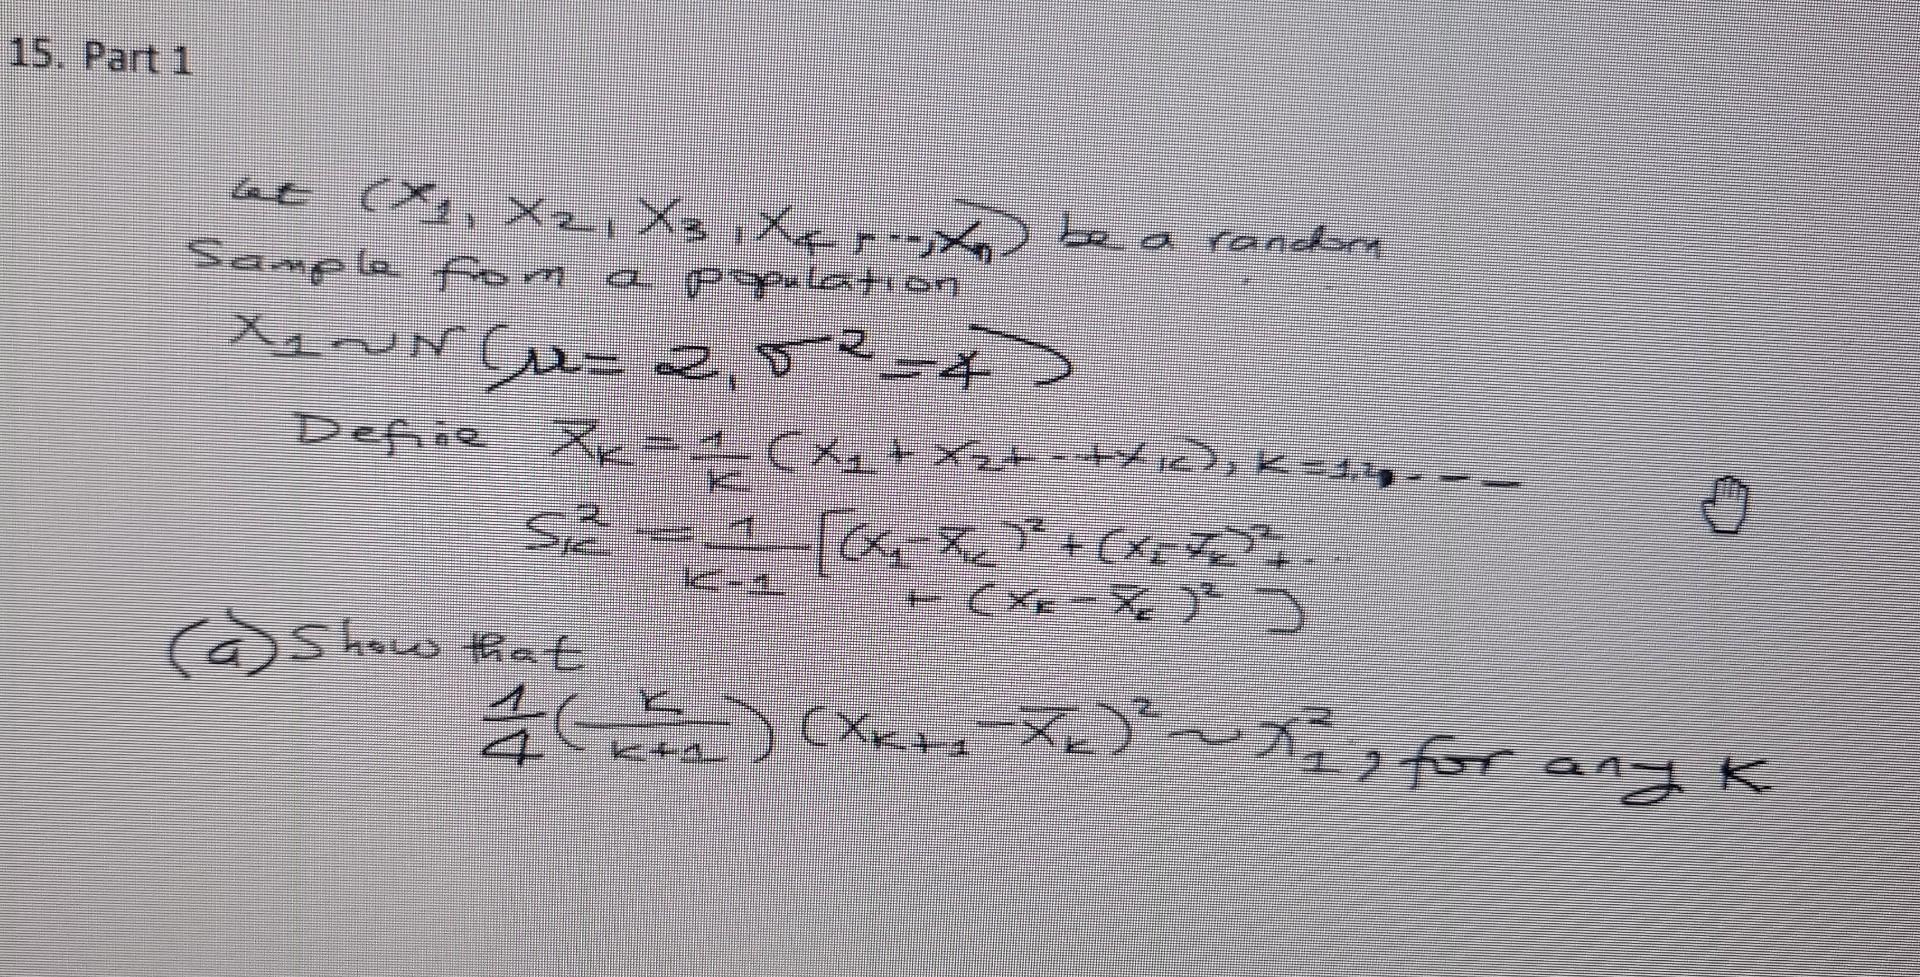 15. Part 1
Let (X₁, X₂, X₃, X₄, ..., Xₙ) be a random
Sample from a population
X₁ ~ N (μ = 2, σ² = 4)
Define X̄ₖ = 1/K (X₁ + X₂ + - + Xₖ), K = 1,2, - - -
Sₖ² = 1/(K-1) [(X₁ - X̄ₖ)² + (X₂ - X̄ₖ)² + ..
+ (Xₖ - X̄ₖ)²]
(a) Show that
1/4 (K/(K+1)) (Xₖ₊₁ - X̄ₖ)² ~ χ²₁, for any K